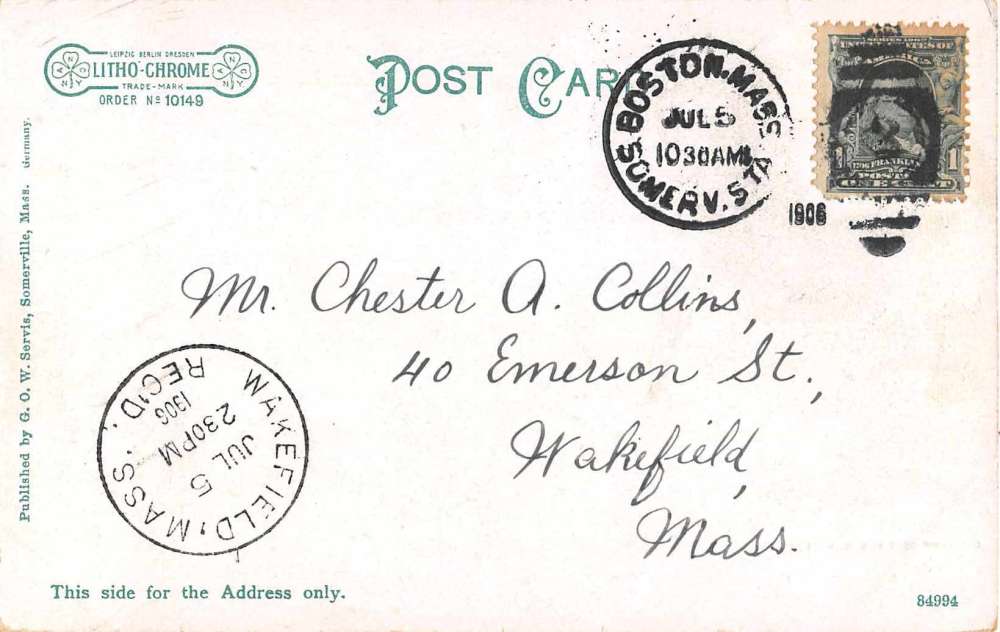 LEIPZIG BERLIN DRESDEN
LITHO-CHROME
TRADE-MARK
ORDER No 10149
POST CARD
BOSTON, MASS
JUL 5
1030AM
SOMERV. STA
1906
SERIES 1902
1706 FRANKLIN
POSTAGE
1 ONE CENT 1
Mr. Chester A. Collins,
40 Emerson St.,
Wakefield,
Mass.
WAKEFIELD, MASS.
JUL
5
230PM
1906
REC'D.
Published by G. O. W. Servis, Somerville, Mass. Germany.
This side for the Address only.
84994